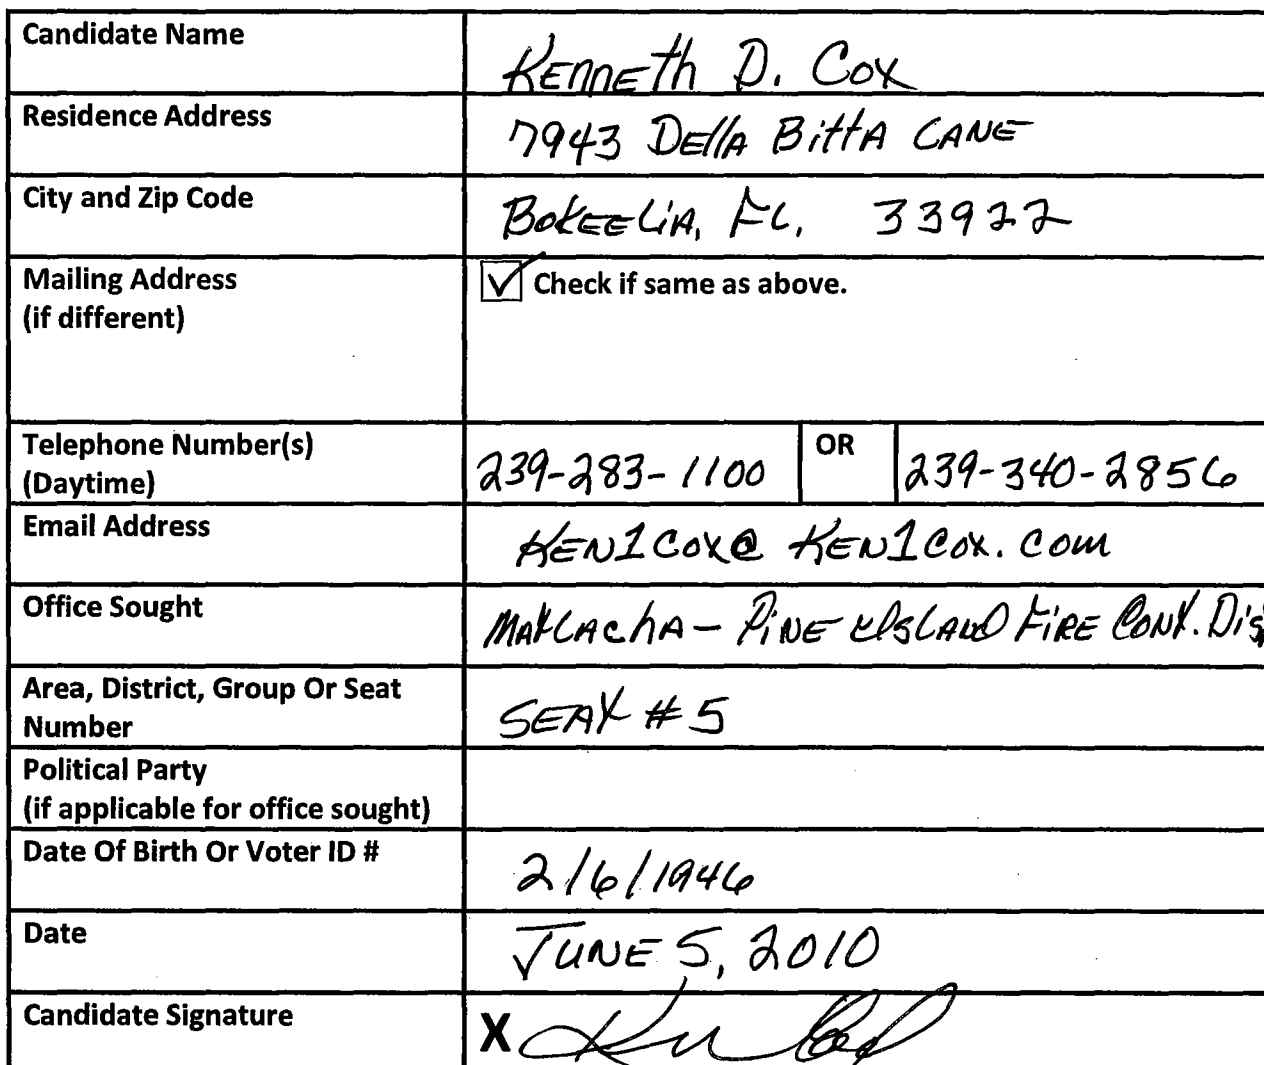 Candidate Name
Kenneth D. Cox
Residence Address
7943 Della Bitta Lane
City and Zip Code
Bokeelia, FL. 33922
Mailing Address
(if different)
☑ Check if same as above.
Telephone Number(s)
(Daytime)
239-283-1100 OR 239-340-2856
Email Address
KEN1COX@KEN1COX.COM
Office Sought
Matlacha - Pine Island Fire Cont. Dis
Area, District, Group Or Seat
Number
Seat #5
Political Party
(if applicable for office sought)
Date Of Birth Or Voter ID #
2/6/1946
Date
June 5, 2010
Candidate Signature
X